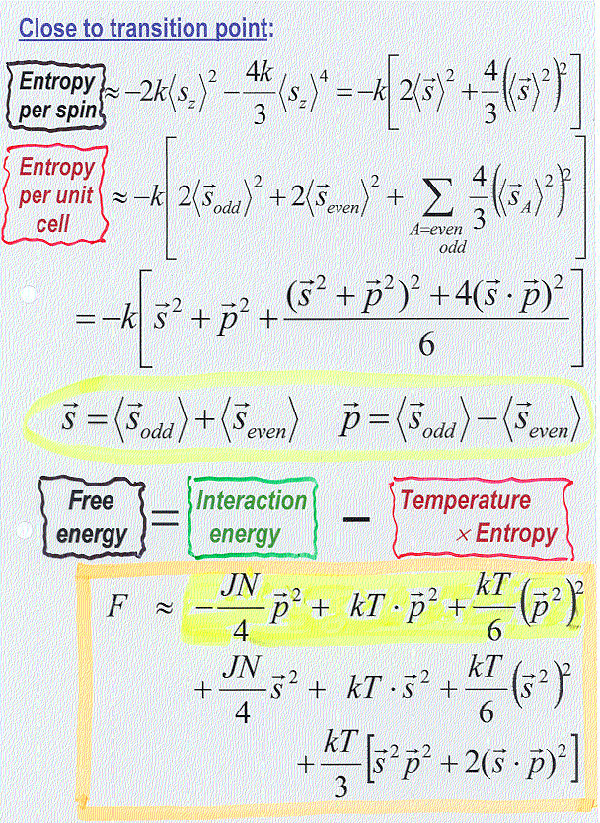 Close to transition point:
Entropy per spin ≈ −2k⟨s_z⟩² − 4k/3 ⟨s_z⟩⁴ = −k[2⟨s⃗⟩² + 4/3(⟨s⃗⟩²)²]
Entropy per unit cell ≈ −k[2⟨s⃗_odd⟩² + 2⟨s⃗_even⟩² + ∑_{A=even odd} 4/3(⟨s⃗_A⟩²)²]
= −k[s⃗² + p⃗² + ((s⃗² + p⃗²)² + 4(s⃗ · p⃗)²)/6]
s⃗ = ⟨s⃗_odd⟩ + ⟨s⃗_even⟩ p⃗ = ⟨s⃗_odd⟩ − ⟨s⃗_even⟩
Free energy = Interaction energy − Temperature × Entropy
F ≈ − JN/4 p⃗² + kT · p⃗² + kT/6 (p⃗²)²
+ JN/4 s⃗² + kT · s⃗² + kT/6 (s⃗²)²
+ kT/3 [s⃗² p⃗² + 2(s⃗ · p⃗)²]